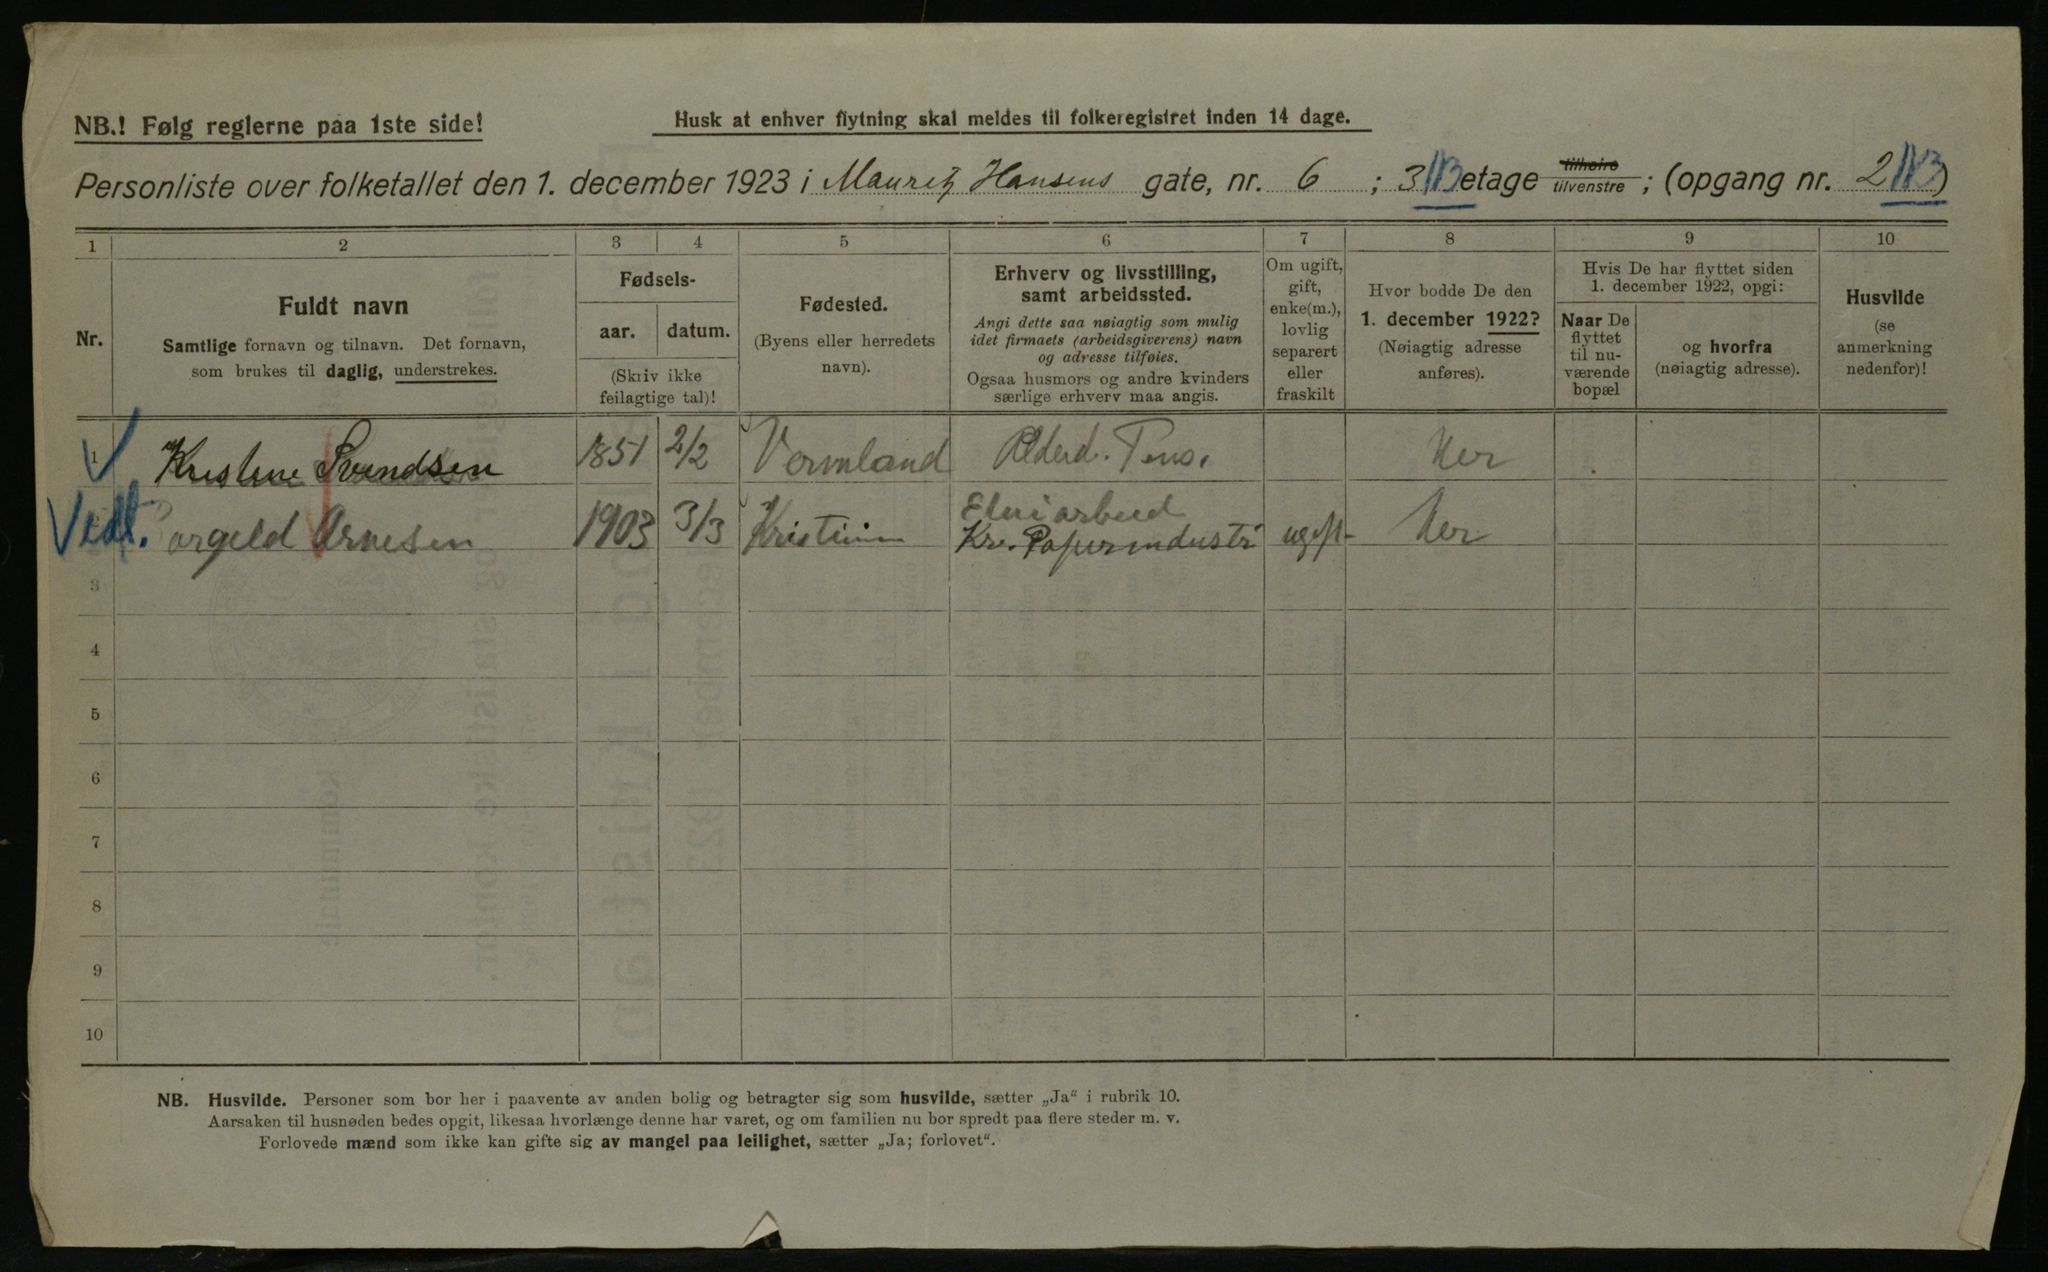 NB.! Følg reglerne paa 1ste side!
Husk at enhver flytning skal meldes til folkeregistret inden 14 dage.
Personliste over folketallet den 1. december 1923 i Mauritz Hansens gate, nr. 6 ; 3 etage tilhøire tilvenstre ; (opgang nr. 2 )
1 2 3 4 5 6 7 8 9 10
Nr.
Fuldt navn
Samtlige fornavn og tilnavn. Det fornavn,
som brukes til daglig, understrekes.
Fødsels-
aar. datum.
(Skriv ikke
feilagtige tal)!
Fødested.
(Byens eller herredets
navn).
Erhverv og livsstilling,
samt arbeidssted.
Angi dette saa nøiagtig som mulig
idet firmaets (arbeidsgiverens) navn
og adresse tilføies.
Ogsaa husmors og andre kvinders
særlige erhverv maa angis.
Om ugift,
gift,
enke(m.),
lovlig
separert
eller
fraskilt
Hvor bodde De den
1. december 1922?
(Nøiagtig adresse
anføres).
Hvis De har flyttet siden
1. december 1922, opgi:
Naar De
flyttet
til nu-
værende
bopæl
og hvorfra
(nøiagtig adresse).
Husvilde
(se
anmerkning
nedenfor)!
1 Kristine Svendsen 1851 2/2 Vermland Alderd. Pens. Her
Arnesen 1903 3/3 Kr. Papirindustri ugift Her
3
4
5
6
7
8
9
10
NB. Husvilde. Personer som bor her i paavente av anden bolig og betragter sig som husvilde, sætter „Ja“ i rubrik 10.
Aarsaken til husnøden bedes opgit, likesaa hvorlænge denne har varet, og om familien nu bor spredt paa flere steder m. v.
Forlovede mænd som ikke kan gifte sig av mangel paa leilighet, sætter „Ja; forlovet“.